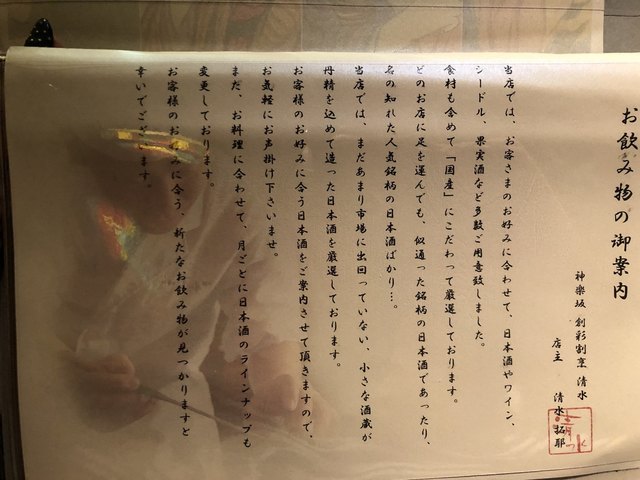 お飲み物の御案内
神楽坂 創彩割烹 清水
店主 清水 拓郎
当店では、お客さまのお好みに合わせて、日本酒やワイン、
シードル、果実酒など多数ご用意致しました。
食材も含めて「国産」にこだわって厳選しております。
どのお店に足を運んでも、似通った銘柄の日本酒であったり、
名の知れた人気銘柄の日本酒ばかり…。
当店では、まだあまり市場に出回っていない、小さな酒蔵が
丹精を込めて造った日本酒を厳選しております。
お客様のお好みに合う日本酒をご案内させて頂きますので、
お気軽にお声掛け下さいませ。
また、お料理に合わせて、月ごとに日本酒のラインナップも
変更しております。
お客様のお好みに合う、新たなお飲み物が見つかりますと
幸いでございます。